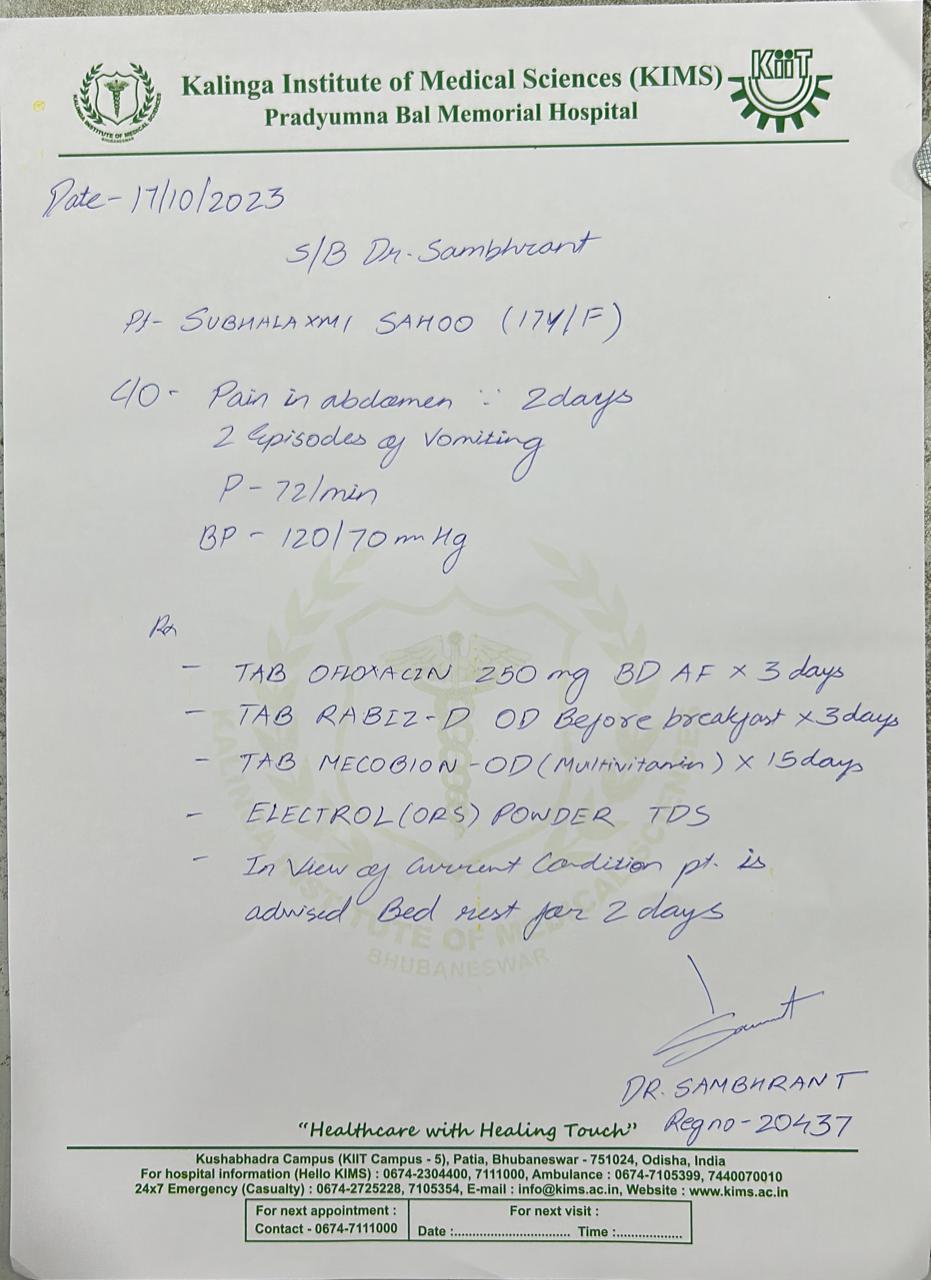 Kalinga Institute of Medical Sciences (KIMS)
Pradyumna Bal Memorial Hospital
KALINGA INSTITUTE OF MEDICAL SCIENCES
BHUBANESWAR
KiiT
Date - 17/10/2023
S/B Dr. Sambhrant
Pt- SUBHALAXMI SAHOO (17Y/F)
C/O - Pain in abdomen ∵ 2days
2 Episodes of Vomiting
P - 72/min
BP - 120/70 mmHg
Rx
- TAB OFLOXACIN 250 mg BD AF x 3 days
- TAB RABIZ-D OD Before breakfast x 3 days
- TAB MECOBION-OD (Multivitamin) x 15 days
- ELECTROL (ORS) POWDER TDS
- In View of Current Condition pt. is
advised Bed rest for 2 days
KALINGA INSTITUTE OF MEDICAL SCIENCES
BHUBANESWAR
DR. SAMBHRANT
Reg no - 20437
"Healthcare with Healing Touch"
Kushabhadra Campus (KIIT Campus - 5), Patia, Bhubaneswar - 751024, Odisha, India
For hospital information (Hello KIMS) : 0674-2304400, 7111000, Ambulance : 0674-7105399, 7440070010
24x7 Emergency (Casualty) : 0674-2725228, 7105354, E-mail : info@kims.ac.in, Website : www.kims.ac.in
For next appointment :
Contact - 0674-7111000
For next visit :
Date :.............................. Time :.................